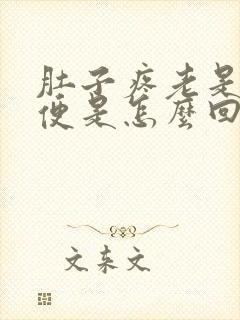 肚子疼老是
便是怎麼回
文东文